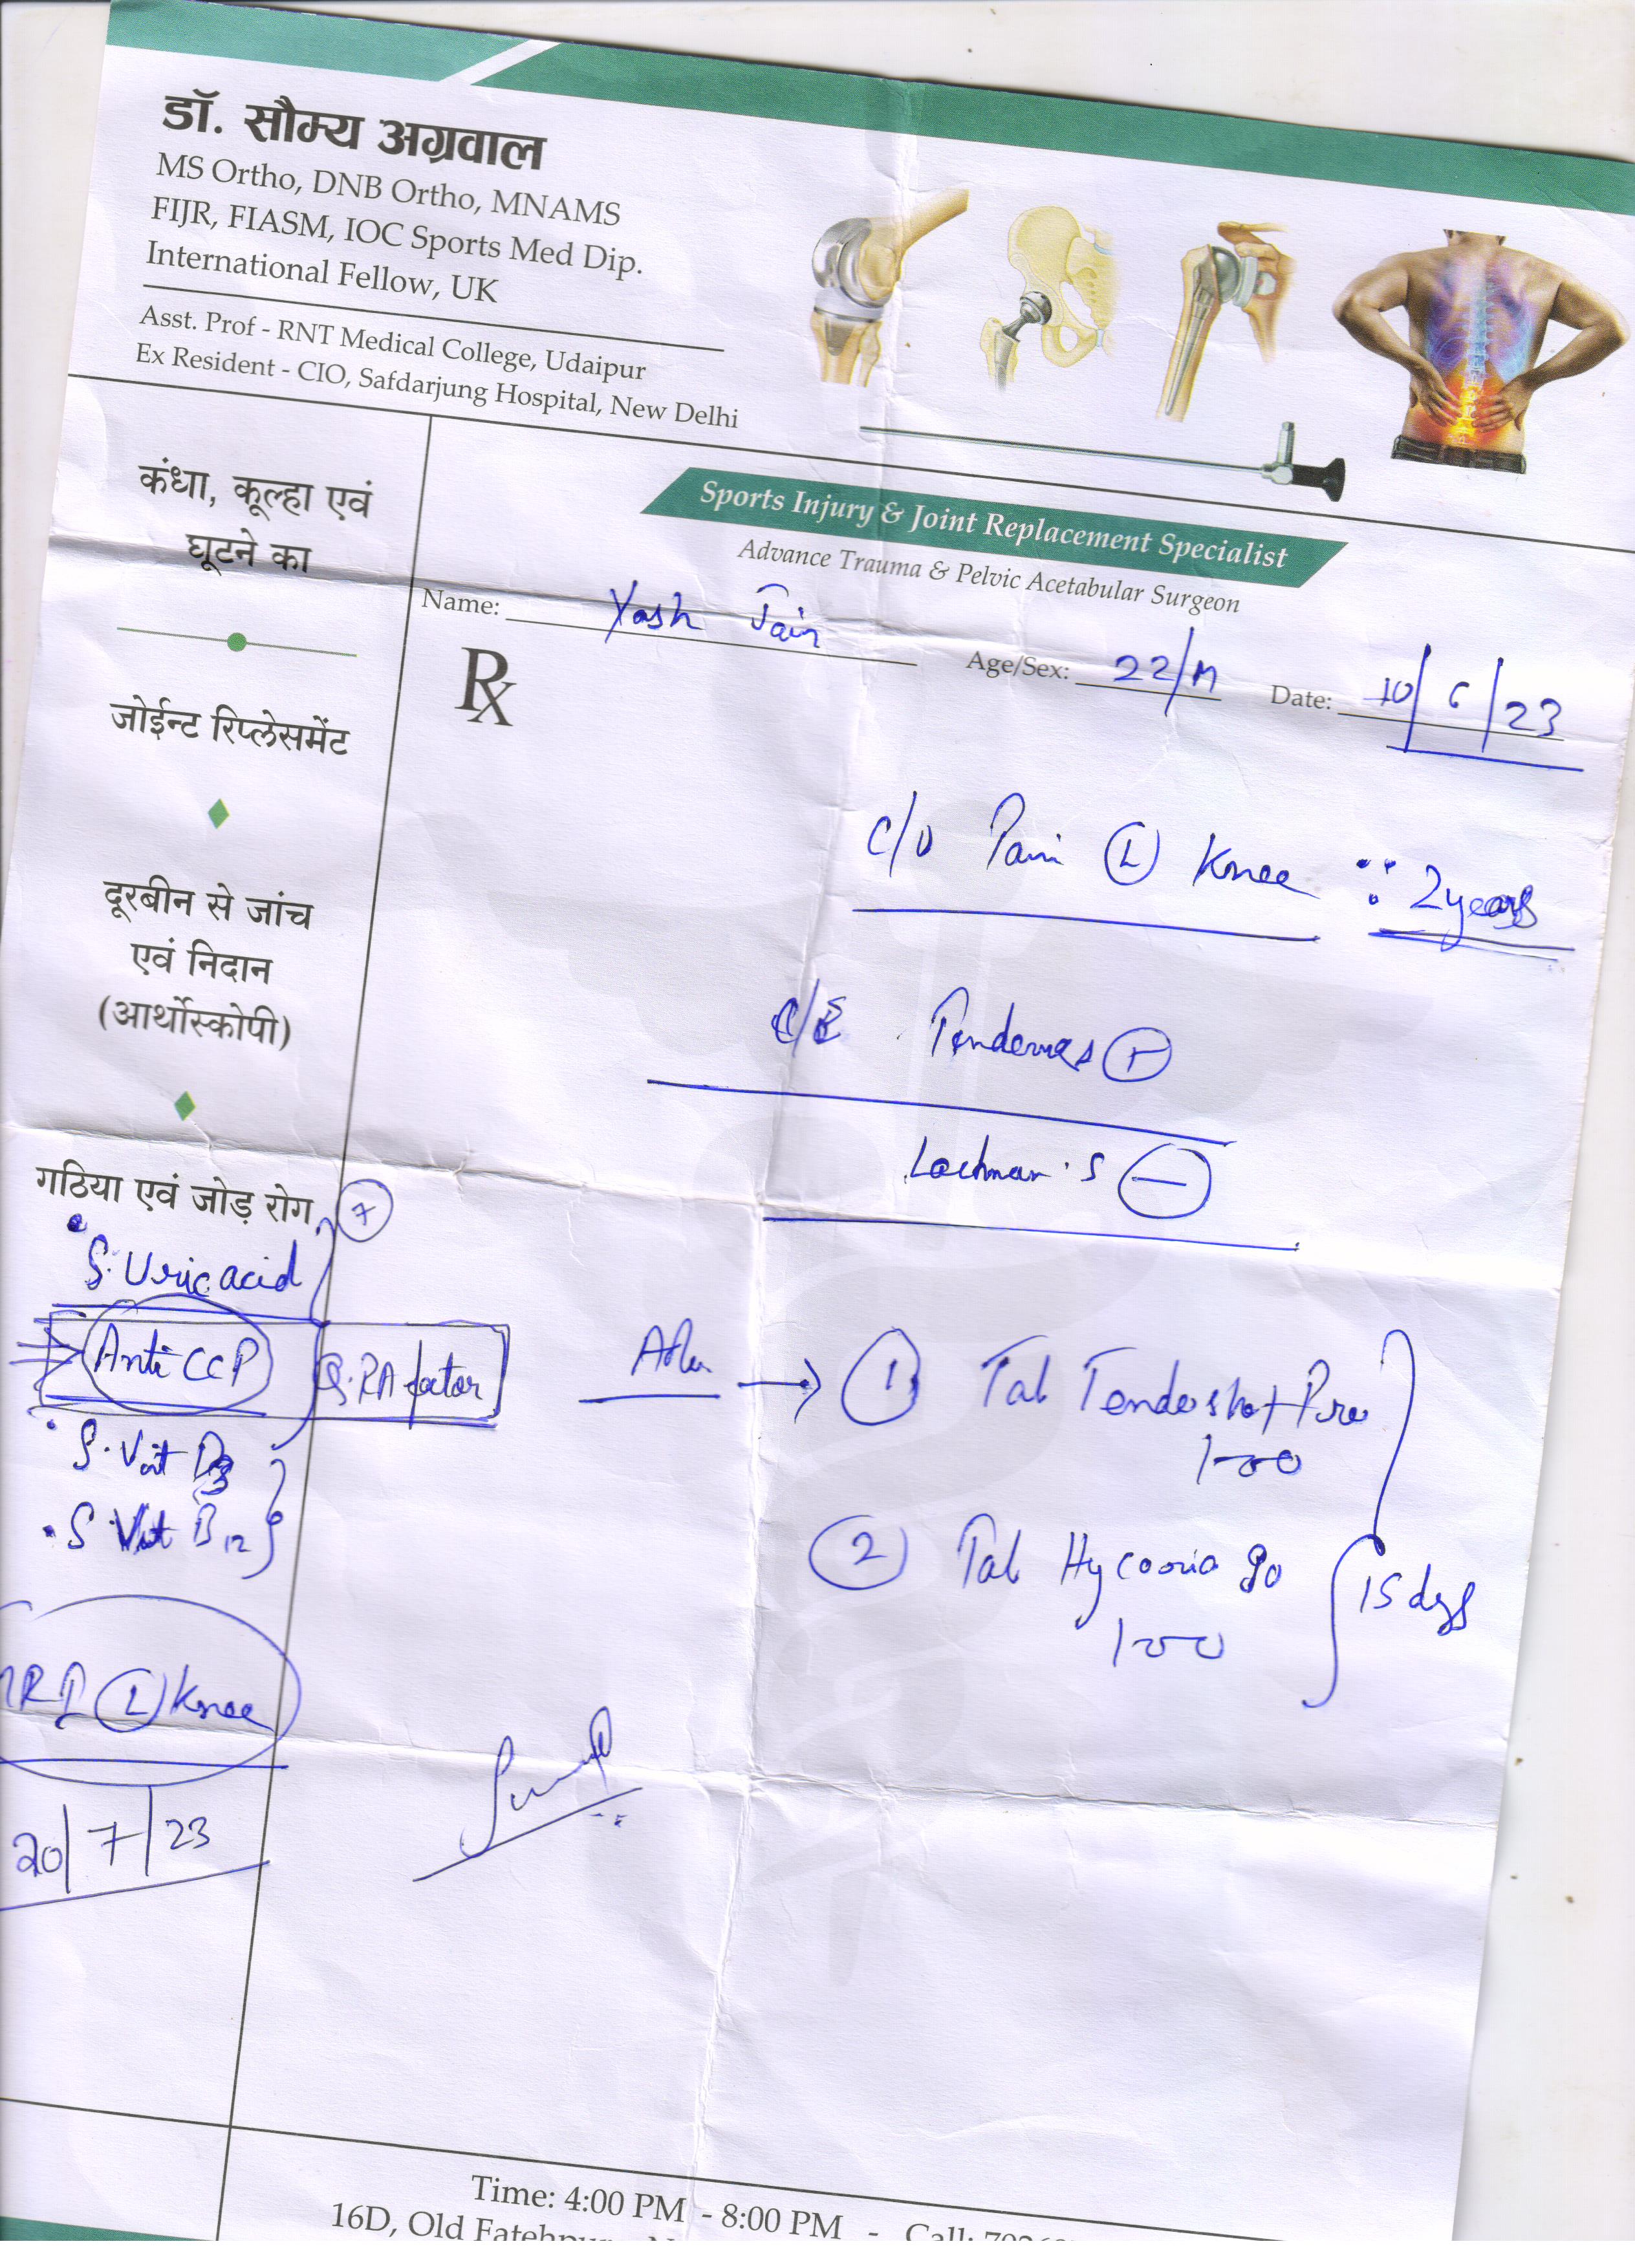 डॉ. सौम्य अग्रवाल
MS Ortho, DNB Ortho, MNAMS
FIJR, FIASM, IOC Sports Med Dip.
International Fellow, UK
Asst. Prof - RNT Medical College, Udaipur
Ex Resident - CIO, Safdarjung Hospital, New Delhi
Sports Injury & Joint Replacement Specialist
Advance Trauma & Pelvic Acetabular Surgeon
Name: Yash Jain Age/Sex: 22/M Date: 10/6/23
Rx
कंधा, कूल्हा एवं
घूटने का
जोईन्ट रिप्लेसमेंट
दूरबीन से जांच
एवं निदान
(आर्थोस्कोपी)
गठिया एवं जोड़ रोग
C/O Pain (L) Knee 2 years
Tenderness (+)
Lachman's (-)
S. Uric acid
Anti CCP
RA factor
S. Vit D3
S Vit B12
MRI (L) Knee
20/7/23
→ (1) Tab
100
(2) Tab
100
15 days
Time: 4:00 PM - 8:00 PM - Call:
16D, Old